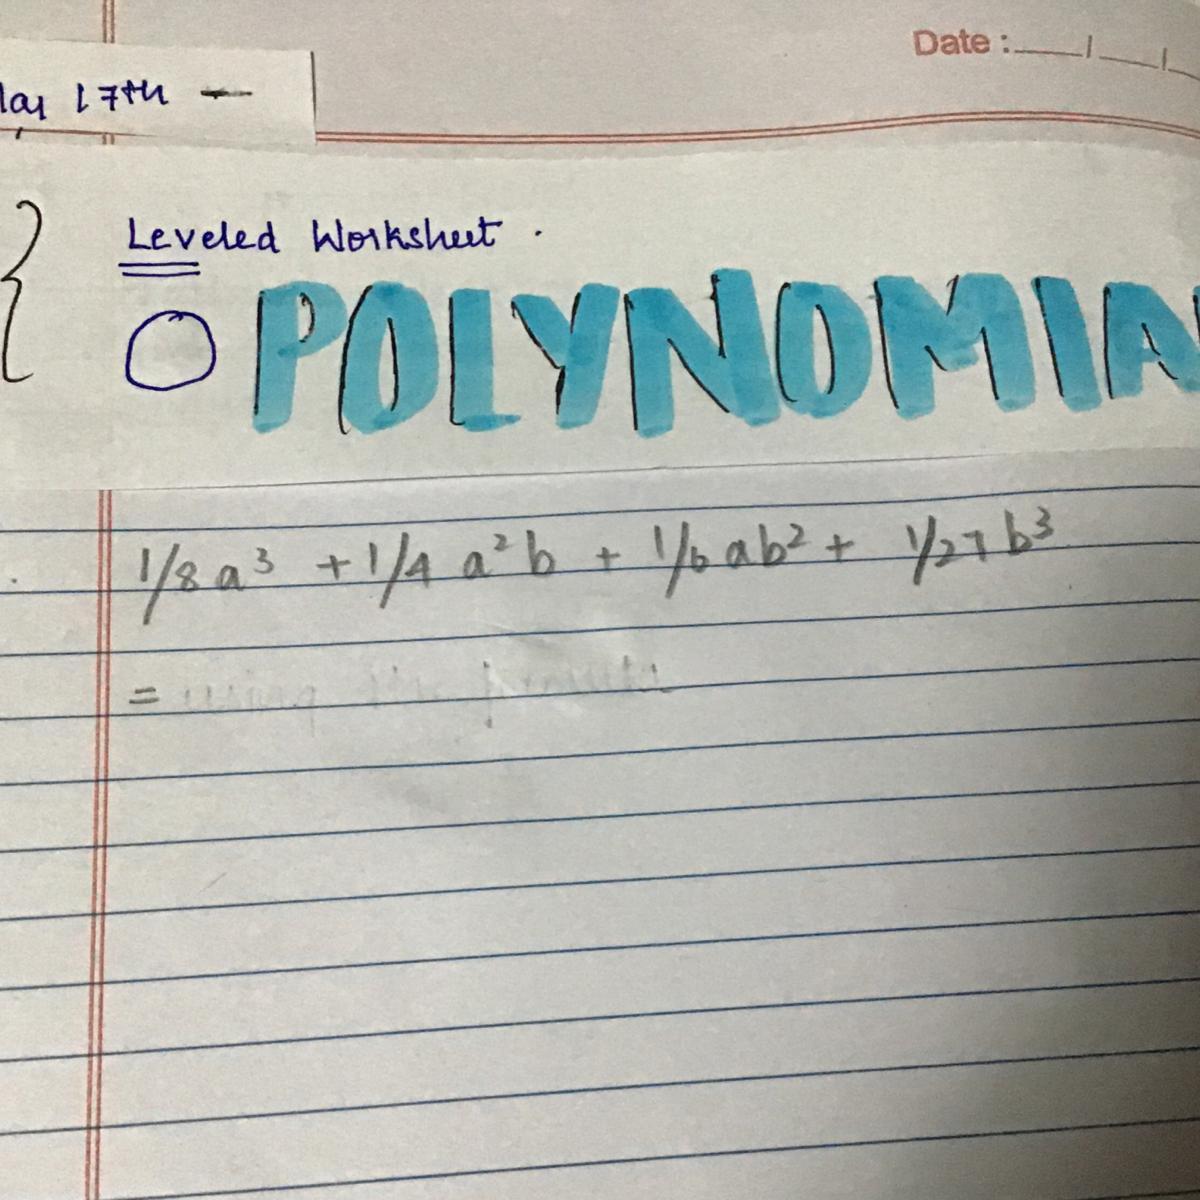 Date :
17th —
Leveled Worksheet .
POLYNOMIA
1/8 a³ + 1/4 a²b + 1/6 ab² + 1/27 b³
= using the